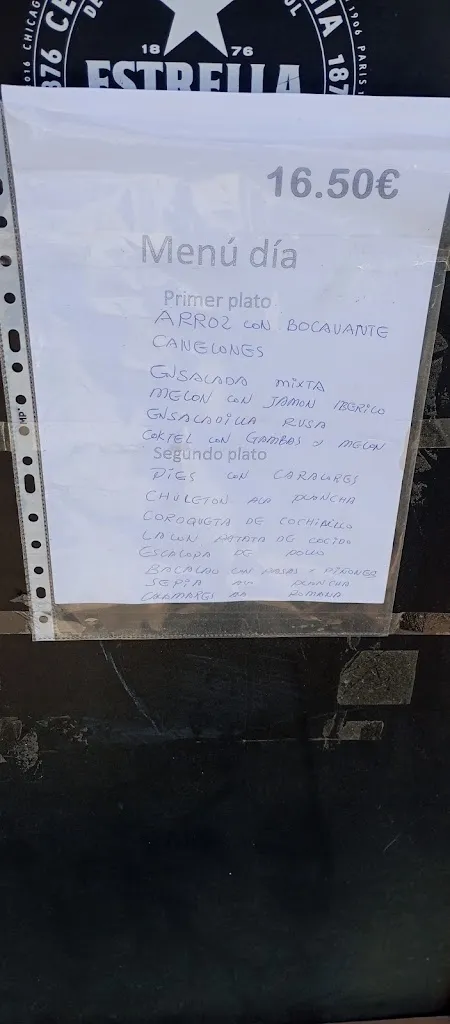 2016 CHICAGO
1876 CE
DE
OL
IA 187
1906 PARIS
18 76
ESTRELLA
16.50€
Menú día
Primer plato
ARROZ CON BOGAVANTE
CANELONES
ENSALADA MIXTA
MELON CON JAMON IBERICO
ENSALADILLA RUSA
COKTEL CON GAMBAS Y MELON
Segundo plato
PIES CON CARACOLES
CHULETON ALA PLANCHA
COROQUETA DE COCHINILLO
LACON PATATA DE COCIDO
ESCALOPA DE POLLO
BACALAO CON PASAS Y PIÑONES
SEPIA ALA PLANCHA
CALAMARES ALA ROMANA